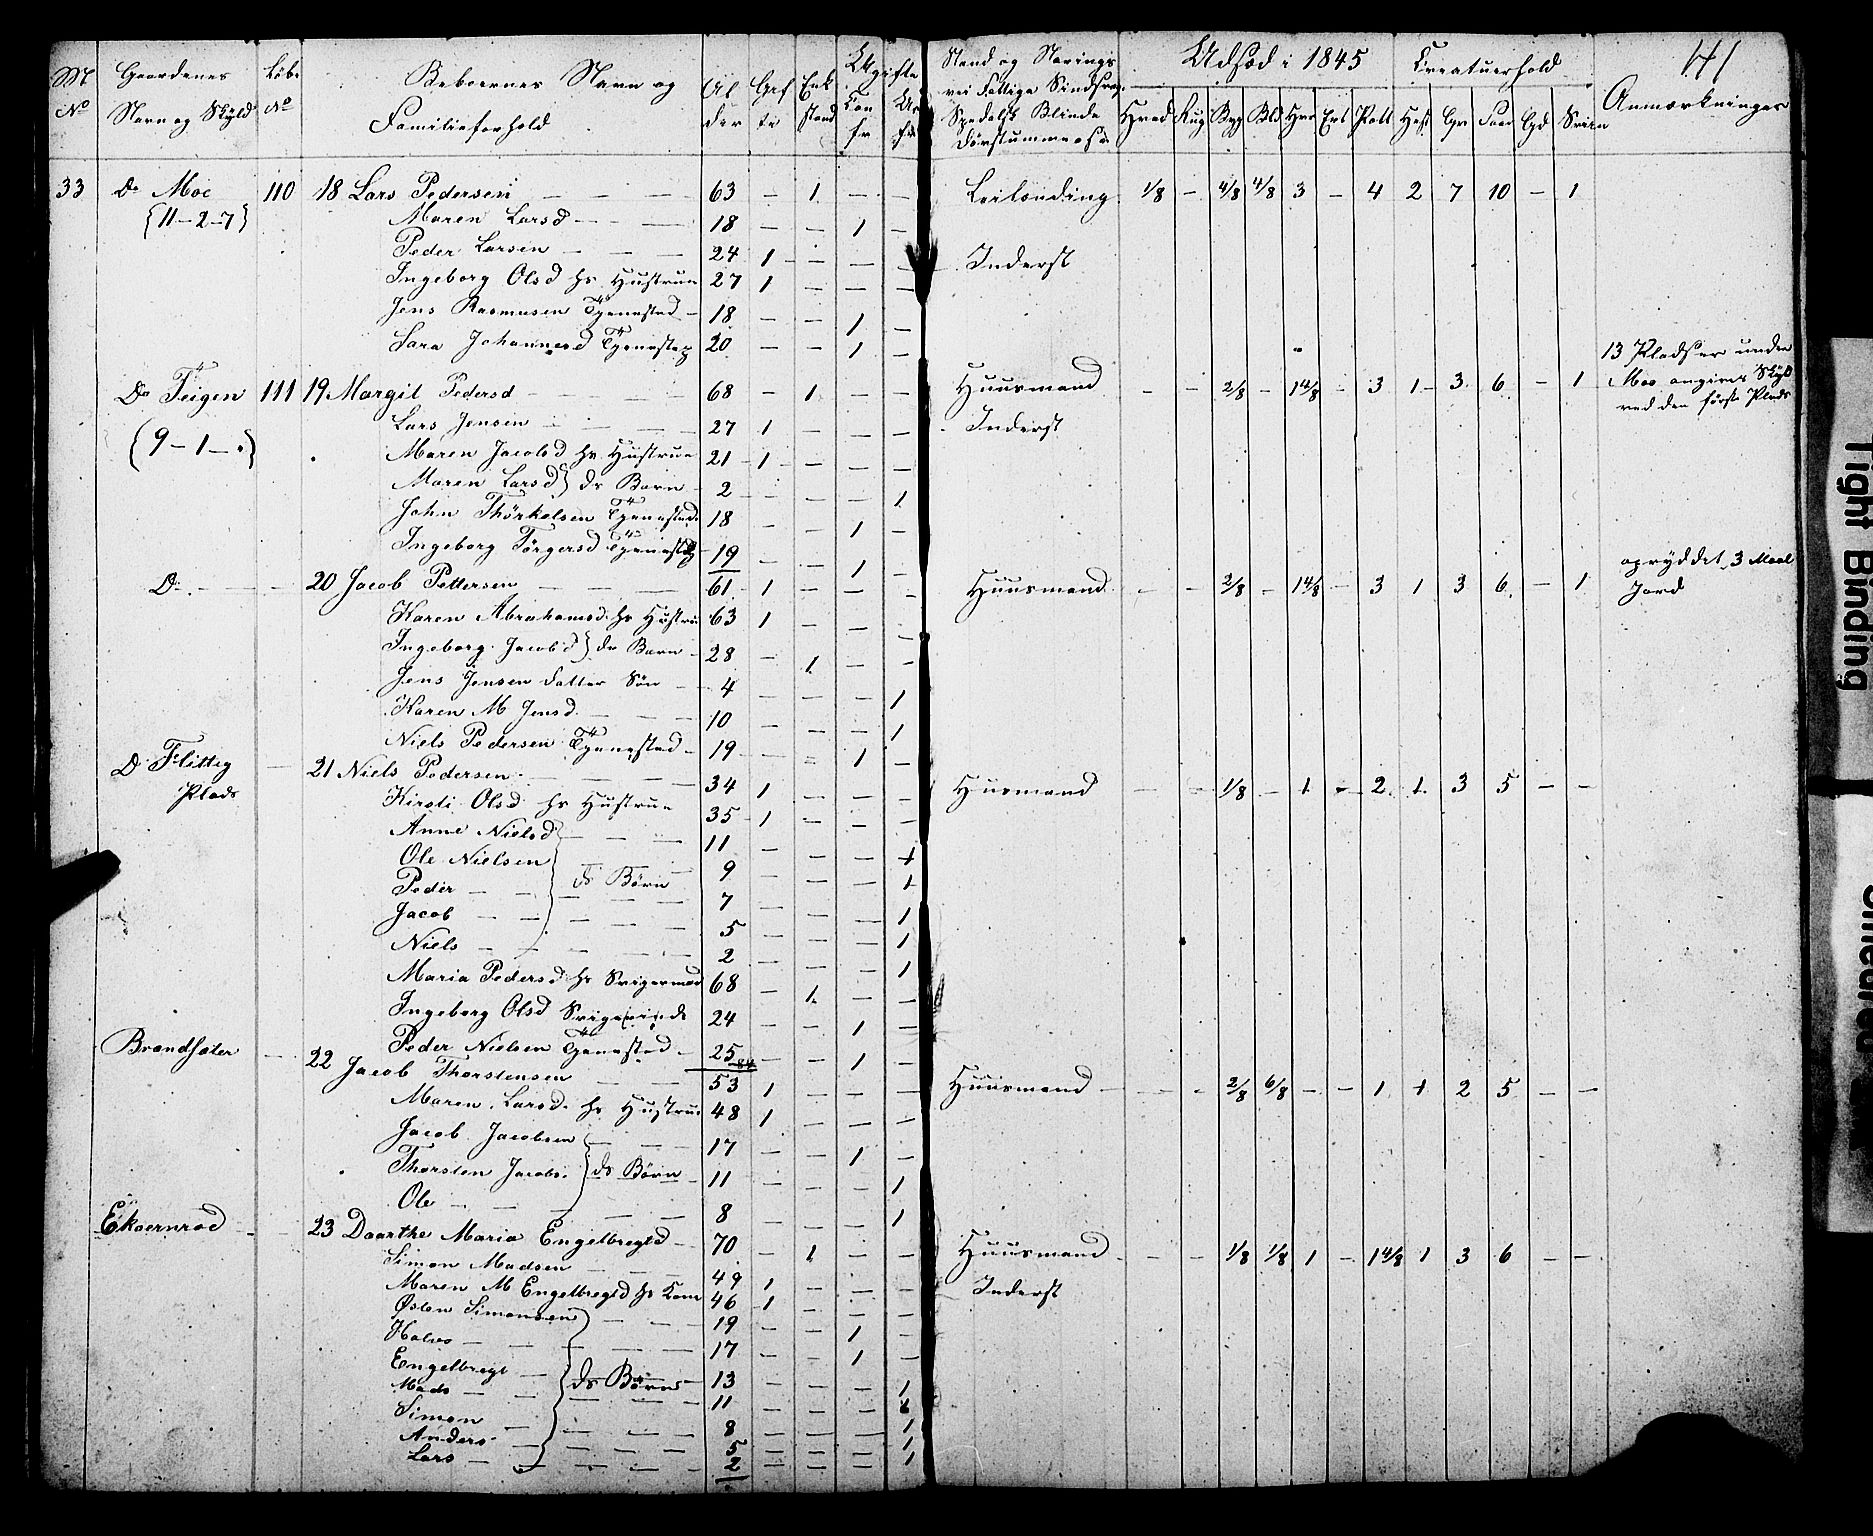 M No Gaardenes Navn og Skyld Løbe No Beboernes Navn og Familieforhold Alder Gifte Enkestand Ugifte Conf Uc
Stand og Nærings Udsæd i 1845 Creaturhold 41
Hved Rug Byg Hest Faar Sviin Anmærkninger
33 Do Moe 110 18 Lars Pedersen — 63 — 1 — — Leilending 1/8 — 4/8 4/8 3 — 4 2 7 10 — 1
{11-2-7} Maren Larsd — 18 — — 1 —
Peder Larsen — 24 1 — — — Inderst
Ingeborg Olsd hs Hustrue 27 1 — — —
Jens Rasmusen Tjenestød 18 — — 1 —
Sara Johannesd 20 — — 1 —
13 Pladser under
Do Feigen 111 19 Margit Pedersd — 68 — 1 — — Huusmand — — 2/8 — 1 4/8 — 3 1 3 6 — 1 Moe angives Skyld
ved den første Plads
{9-1-"} Lars Jensen — 27 1 — — — Inderst
Maren Jacobsd hs Hustrue 21 1 — — —
Maren Larsd } ds Barn 2 — — — 1
John Thorkelsen 18 — — 1 —
Ingeborg Torgersd 19 — — 1 —
opryddet 3 Maal
Do — 20 Jacob Pettersen 61 1 — — — Huusmand — — 2/8 — 1 4/8 — 3 1 3 6 — 1 Jord
Karen Abrahamsd hs Hustru 63 1 — — —
Ingeborg Jacobsd } ds Barn 28 — 1 — —
Jens Jensen Datter Søn — 4 — — — 1
Karen M Jensd — 10 — — — 1
Niels Pedersen 19 — — 1 —
Do Flittig — 21 Niels Pedersen — 34 1 — — — Huusmand — — 1/8 — 1 — 2 1 3 5 — —
Plads Kirsti Olsd hs Hustrue 35 1 — — —
Anne Nielsd — 11 — — — 1
Ole Nielsen 9 — — — 1
Peder — ds Børn 7 — — — 1
Jacob — 5 — — — 1
Niels — 2 — — — 1
Maria Pedersd hs Svigermod 68 — 1 — —
Ingeborg Olsd 24 — — 1 —
Peder Nielsen 25 — — 1 —
Brandsæter — 22 Jacob Thorstensen — 53 1 — — — Huusmand — — — 2/8 6/8 — — 1 1 2 5 — —
Maren Larsd hs Hustrue 48 1 — — —
Jacob Jacobsen — 17 — — 1 —
Thorsten Jacobs. ds Børn 11 — — — 1
Ole — 8 — — — 1
Ekoernrød — 23 Daarthe Maria Engelbregtd — 70 — 1 — — Huusmand — — 1/8 1/8 1 — 1 4/8 1 3 6 — —
Simon Madsen — 49 1 — — — Inderst
Maren M Engelbregtd hs Kone 46 1 — — —
Østen Simonsen — 19 — — 1 —
Halvo — 17 — — 1 —
Engelbregt — ds Børn 13 — — — 1
Mads — 11 — — — 1
Simon — 8 — — — 1
Anders — 5 — — — 1
Lars — 2 — — — 1
Tight Binding